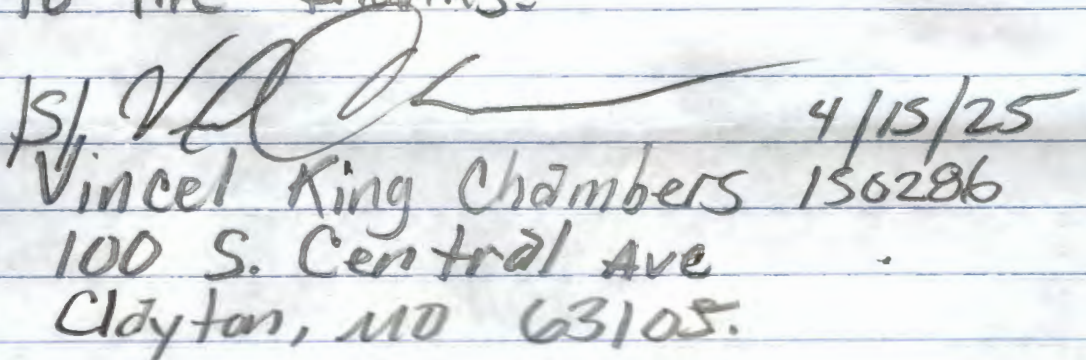 /S/
4/15/25
Vincel King Chambers 150286
100 S. Central Ave
Clayton, MO 63105.